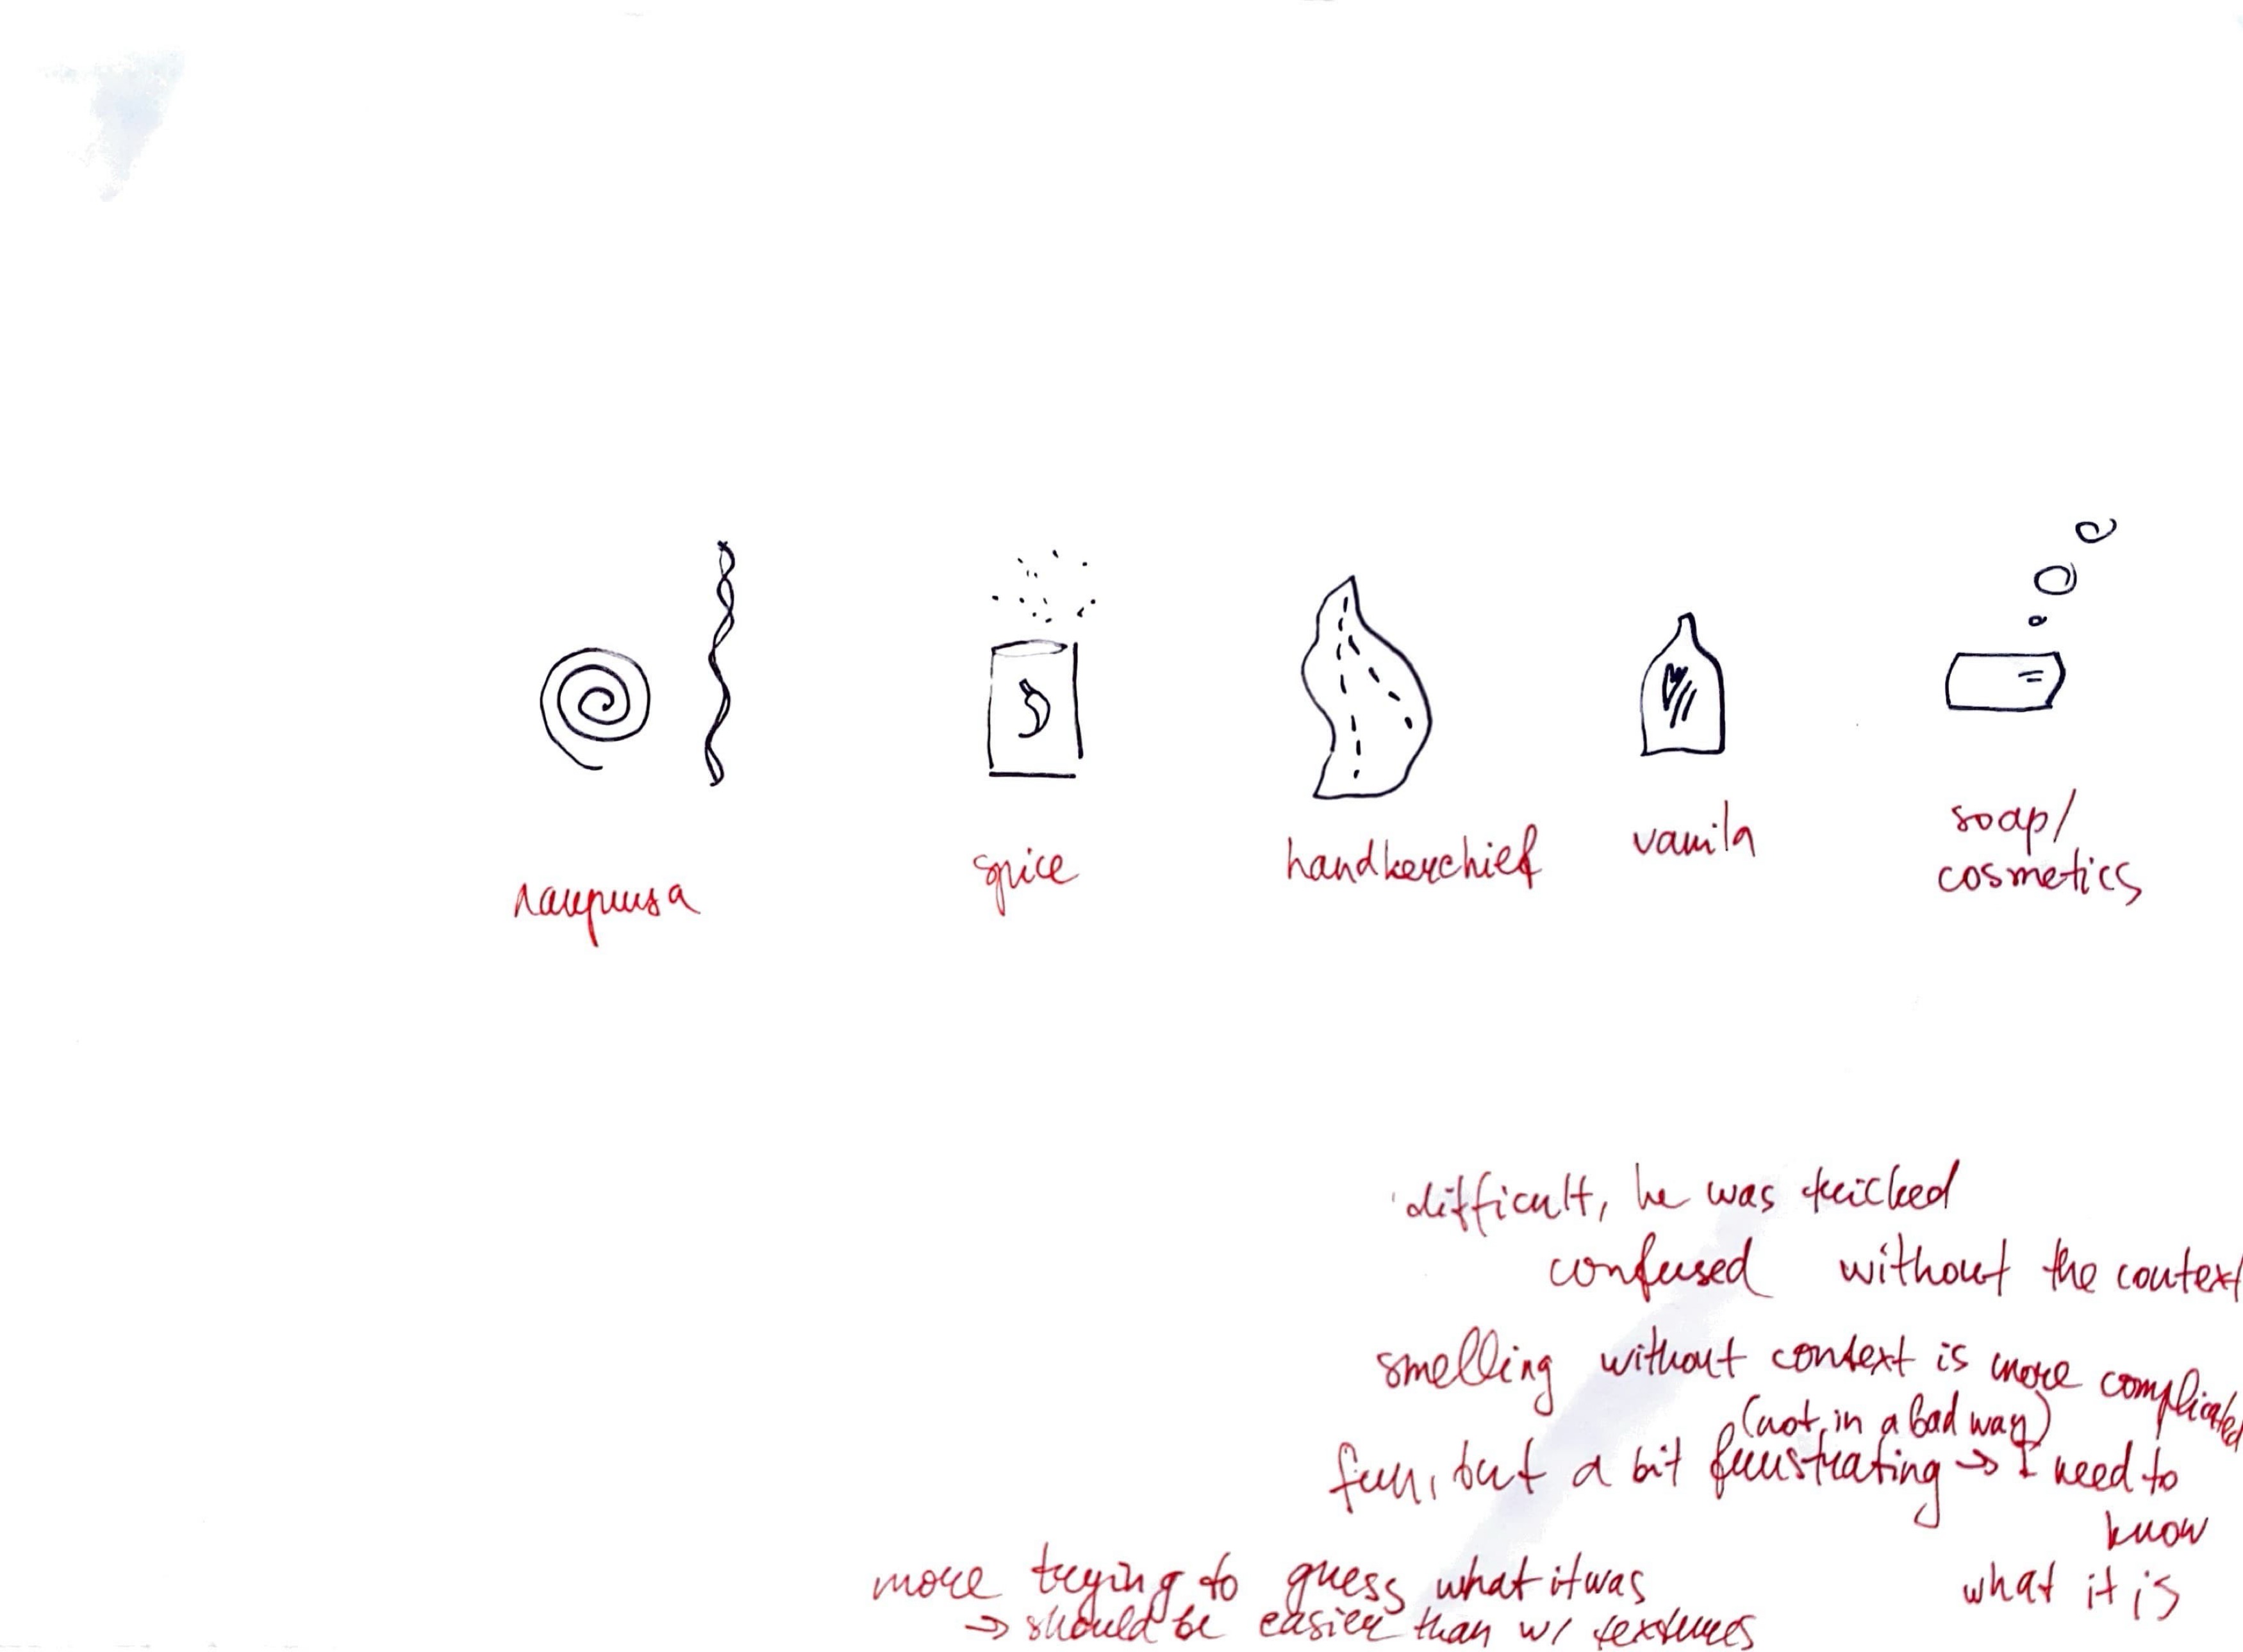 лакрица
spice
handkerchief
vanila
soap/
cosmetics
difficult, he was tricked
confused without the context
smelling without context is more complicated
(not in a bad way)
fun, but a bit frustrating → I need to
know
what it is
more trying to guess what it was
→ should be easier than w/ textures